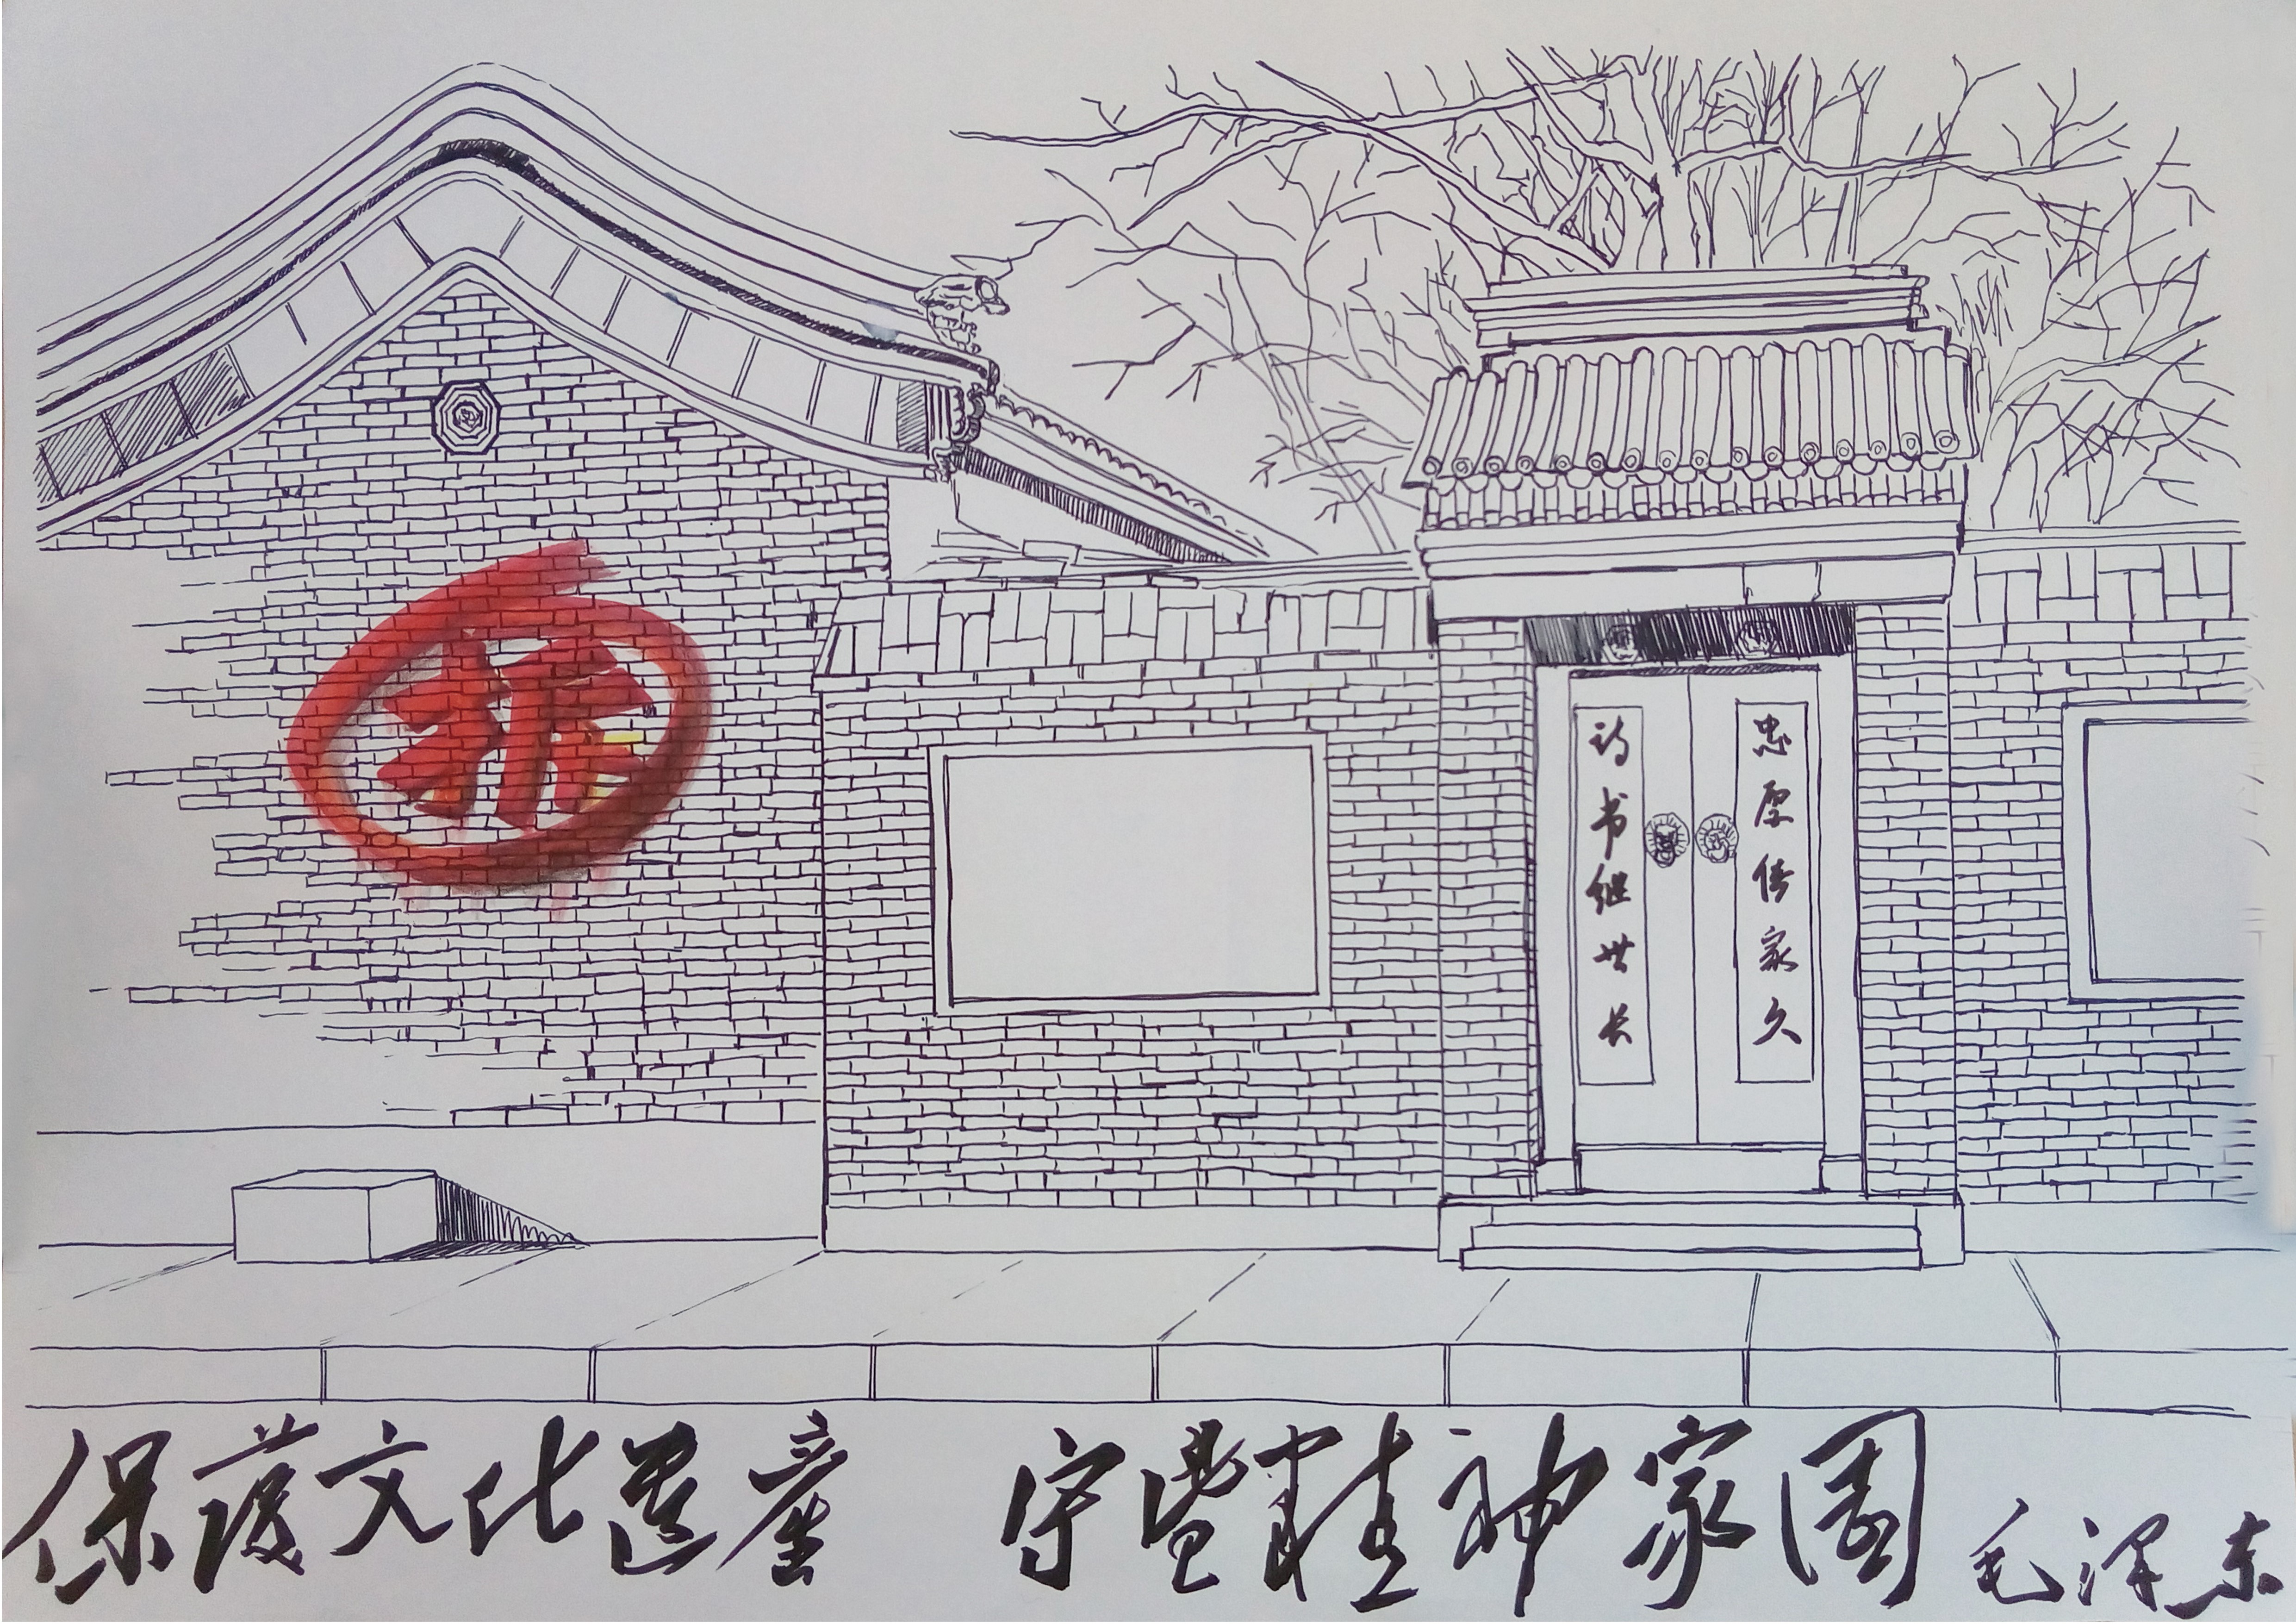 拆
忠厚传家久
诗书继世长
保護文化遺產 守望精神家園 毛泽东